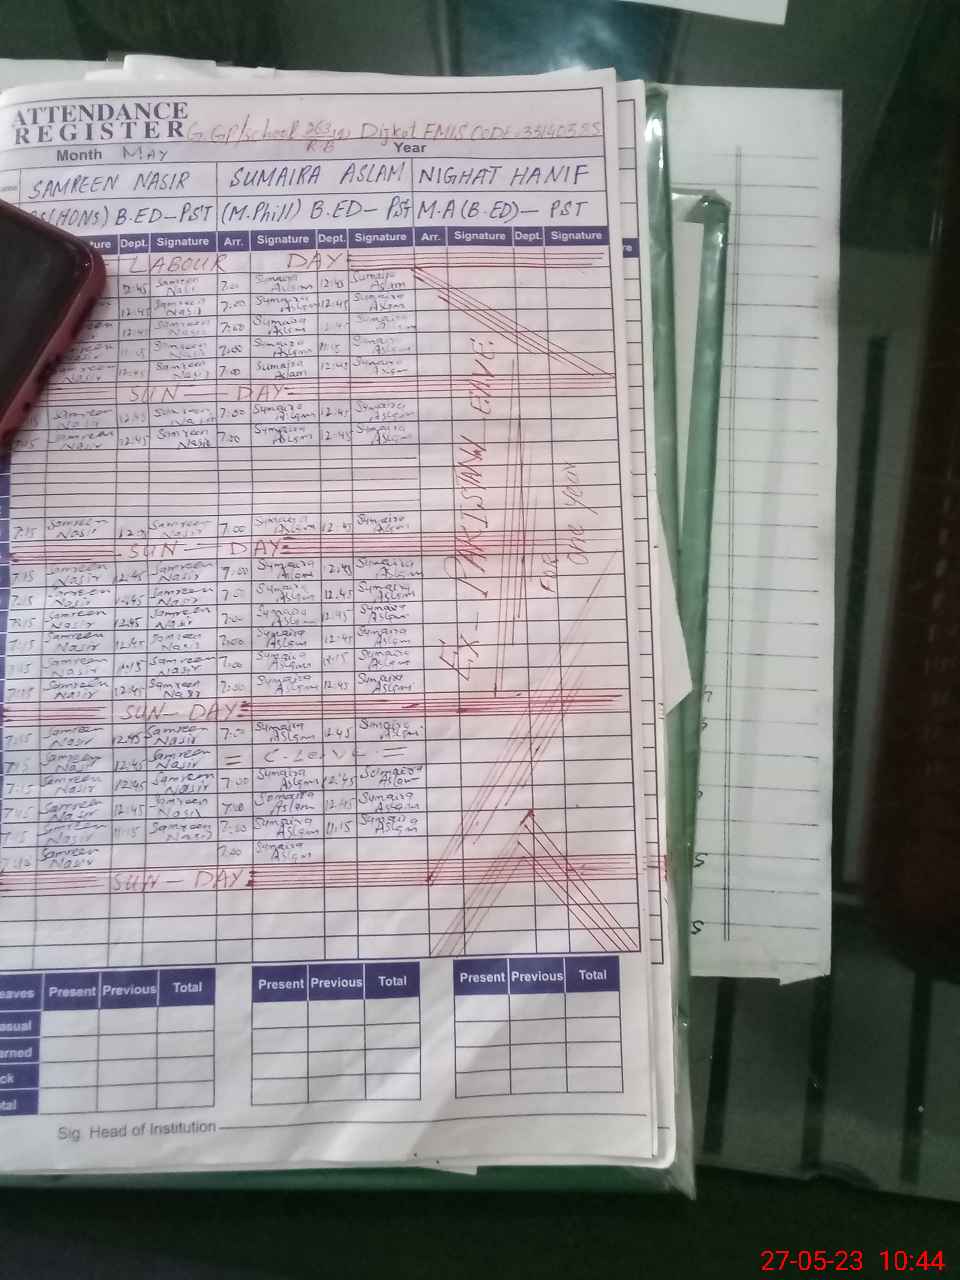 ATTENDANCE
REGISTER G.GP/school 363 Dijkot EMIS CODE:
R.B
Month MAY Year
SAMREEN NASIR SUMAIRA ASLAM NIGHAT HANIF
(HONS) B.ED-PST (M.Phill) B.ED- Pst M.A (B.ED)- PST
ture Dept. Signature Arr. Signature Dept. Signature Arr. Signature Dept. Signature
LABOUR DAY
12:45 Samreen Nasir 7:00 Sumaira Aslam 12:45 Sumaira Aslam
12:45 Samreen Nasir 7:00 Sumaira Aslam 12:45 Sumaira Aslam
12:45 Samreen Nasir 7:00 Sumaira Aslam 12:45 Sumaira Aslam
11:15 Samreen Nasir 7:00 Sumaira Aslam 11:15 Sumaira Aslam
12:45 Samreen Nasir 7:00 Sumaira Aslam 12:45 Sumaira Aslam
SUN - DAY
Samreen Nasir 12:45 Samreen Nasir 7:00 Sumaira Aslam 12:45 Sumaira Aslam
Samreen Nasir 12:45 Samreen Nasir 7:00 Sumaira Aslam 12:45 Sumaira Aslam
EX - PAKISTAN LEAVE
FOR
One year
7:15 Samreen Nasir Samreen Nasir 7:00 Sumaira Aslam 12:45 Sumaira Aslam
SUN - DAY
7:15 Samreen Nasir 12:45 Samreen Nasir 7:00 Sumaira Aslam 12:45 Sumaira Aslam
7:15 Samreen Nasir 12:45 Samreen Nasir 7:00 Sumaira Aslam 12:45 Sumaira Aslam
7:15 Samreen Nasir 12:45 Samreen Nasir 7:00 Sumaira Aslam 12:45 Sumaira Aslam
7:15 Samreen Nasir 12:45 Samreen Nasir 7:00 Sumaira Aslam 12:45 Sumaira Aslam
7:15 Samreen Nasir 11:15 Samreen Nasir 7:00 Sumaira Aslam 11:15 Sumaira Aslam
7:15 Samreen Nasir 12:45 Samreen Nasir 7:00 Sumaira Aslam 12:45 Sumaira Aslam
SUN - DAY
7:15 Samreen Nasir 12:45 Samreen Nasir 7:00 Sumaira Aslam 12:45 Sumaira Aslam
7:15 Samreen Nasir 12:45 Samreen Nasir = C-Leave =
7:15 Samreen Nasir 12:45 Samreen Nasir 7:00 Sumaira Aslam 12:45 Sumaira Aslam
7:15 Samreen Nasir 12:45 Samreen Nasir 7:00 Sumaira Aslam 12:45 Sumaira Aslam
7:15 Samreen Nasir 11:15 Samreen Nasir 7:00 Sumaira Aslam 11:15 Sumaira Aslam
Samreen Nasir 7:00 Sumaira Aslam
SUN - DAY
eaves Present Previous Total Present Previous Total Present Previous Total
asual
arned
ck
tal
Sig. Head of Institution
27-05-23 10:44